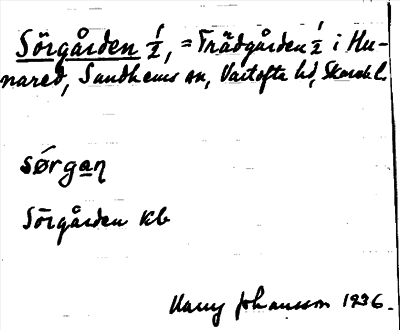 Sörgården 1/2, = Trädgården 1/2 i Hu-
nared, Sandhems sn, Vartofta hd, Skarab. l.
sørgan
Sörgården kb
Harry Johansson 1936.